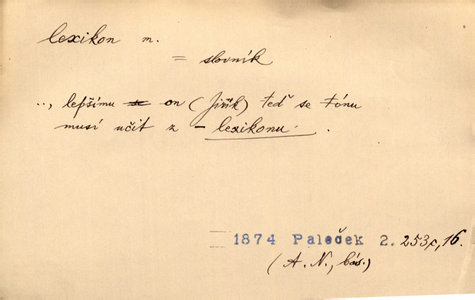 lexikon m.
= slovník
.., lepšímu se on (Jiřík) teď se tónu
musí učit z – lexikonu.
1874 Paleček 2. 253, 16.
(A. N., bás.)